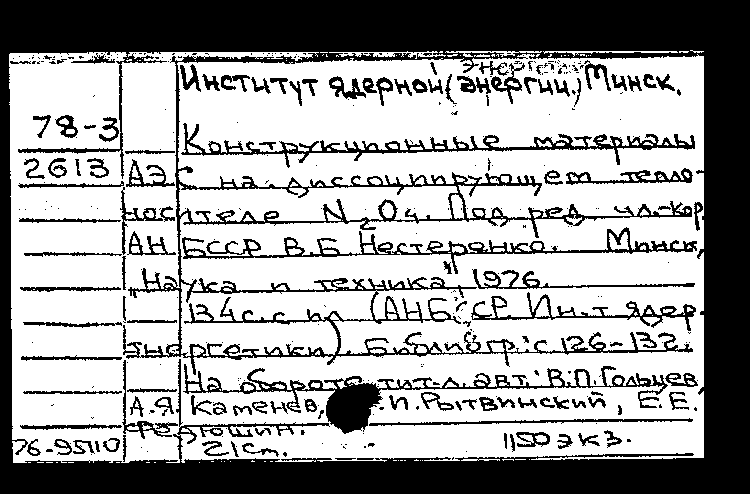 Институт ядерной (энергии) Минск.
78-3
Конструкционные материалы
2613 АЭС на диссоциирующем тепло-
носителе N2O4. Под ред. чл.-кор.
АН БССР В.Б Нестеренко. Минск,
„Наука и техника", 1976.
134с. с ил (АН БССР. Ин-т ядер.
энергетики). Библиогр: с 126-132.
На обороте тит. л. авт: В.П. Гольцев,
А.Я. Каменев, .И. Рытвинский, Е.Е.
Федюшин.
76-95110 21см. 1150 экз.